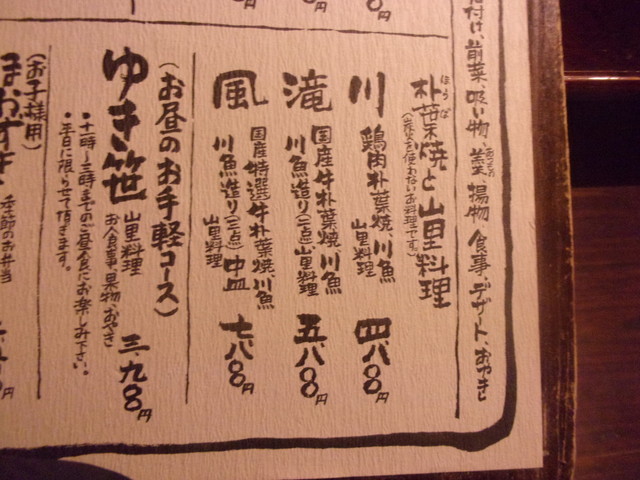 付け、前菜、吸い物、蓋物、揚物、食事、デザート、おやき
朴葉焼と山里料理
ほうば
(炭火を使わないお料理です。)
川
鶏肉朴葉焼、川魚
山里料理
四、八〇〇円
滝
国産牛朴葉焼、川魚
川魚造り(二点)山里料理
五、八〇〇円
風
国産特選牛朴葉焼、川魚
川魚造り(三点)中皿
山里料理
七、八〇〇円
(お昼のお手軽コース)
ゆき笹
山里料理
お食事、果物、おやき
三、九八〇円
・十一時〜三時までのご昼食にお楽しみ下さい。
・平日に限らせて頂きます。
(お子様用)
ほおずき
季節のお弁当